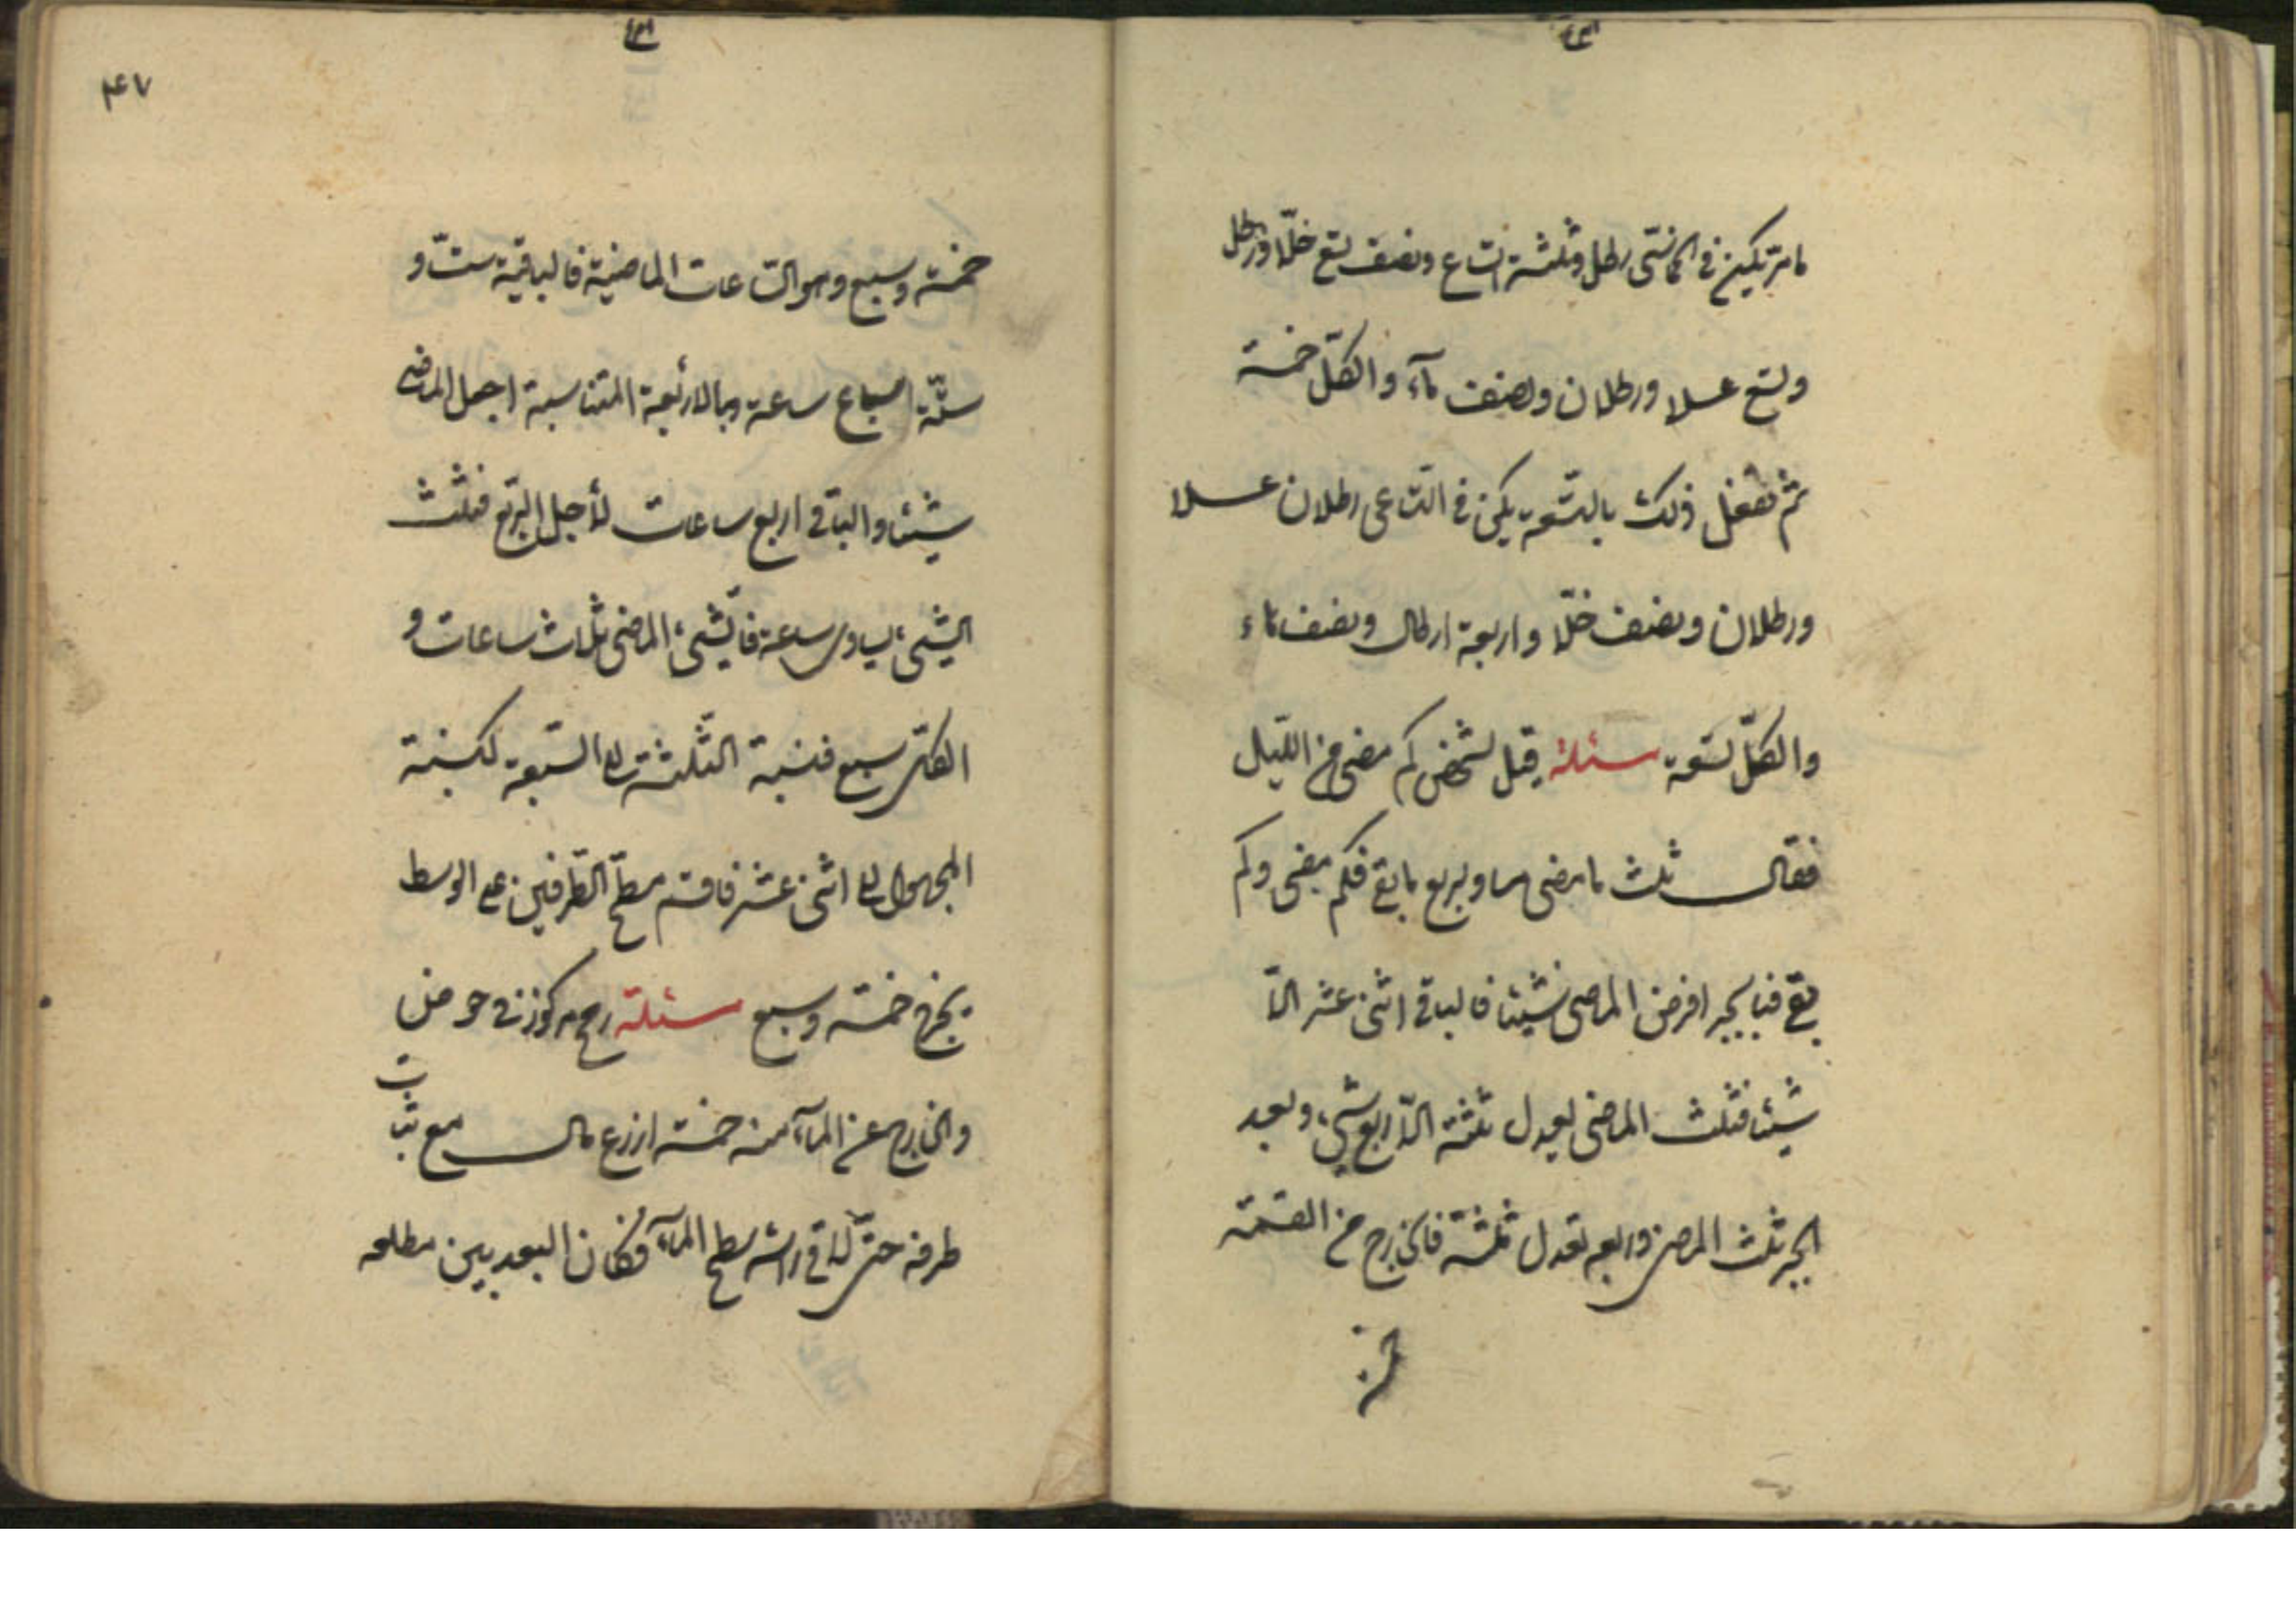 مامر يكن في الثمانتى رطل وثلثة اتساع ونصف تسع خلا ورطل
وتسع عسلا ورطلان ونصف مآء والكلّ خمسة
ثم تفعل ذلك بالتسعة يكن في التساعى رطلان عسلا
ورطلان ونصف خلّا واربعة ارطال ونصف ماء
والكلّ تسعة مسئلة قيل لشخص كم مضى من اللّيل
فقال ثلث ما مضى يساوى ربع ما بقى فكم مضى وكم
بقى فبالجبر افرض الماضى شيئا فالباقى اثنى عشر الّا
شيئا فثلث الماضى يعدل ثلثة الّا ربع شئ وبعد
الجبر ثلث الماضى وربعه يعدل ثلثة فالخارج من القسمة
خمسة
۴۷
خمسة وسبع وهو الساعات الماضية فالباقية ستّ و
ستّة اسباع ساعة وبالاربعة المتناسبة اجعل الماضى
شيئا والباقى اربع ساعات لأجل الربع فثلث
الشئ يساوى ساعة فالشئ الماضى ثلاث ساعات و
الكلّ سبع فنسبة الثلثة الى السّبعة كنسبة
المجهول الى اثنى عشر فاقسم مسطّح الطّرفين على الوسط
يخرج خمسة وسبع مسئلة رمح مركوز فى حوض
والخارج عن المآء منه خمسة اذرع مال مع ثبات
طرفه حتى لاقى راسه سطح المآء فكان البعد بين مطلعه